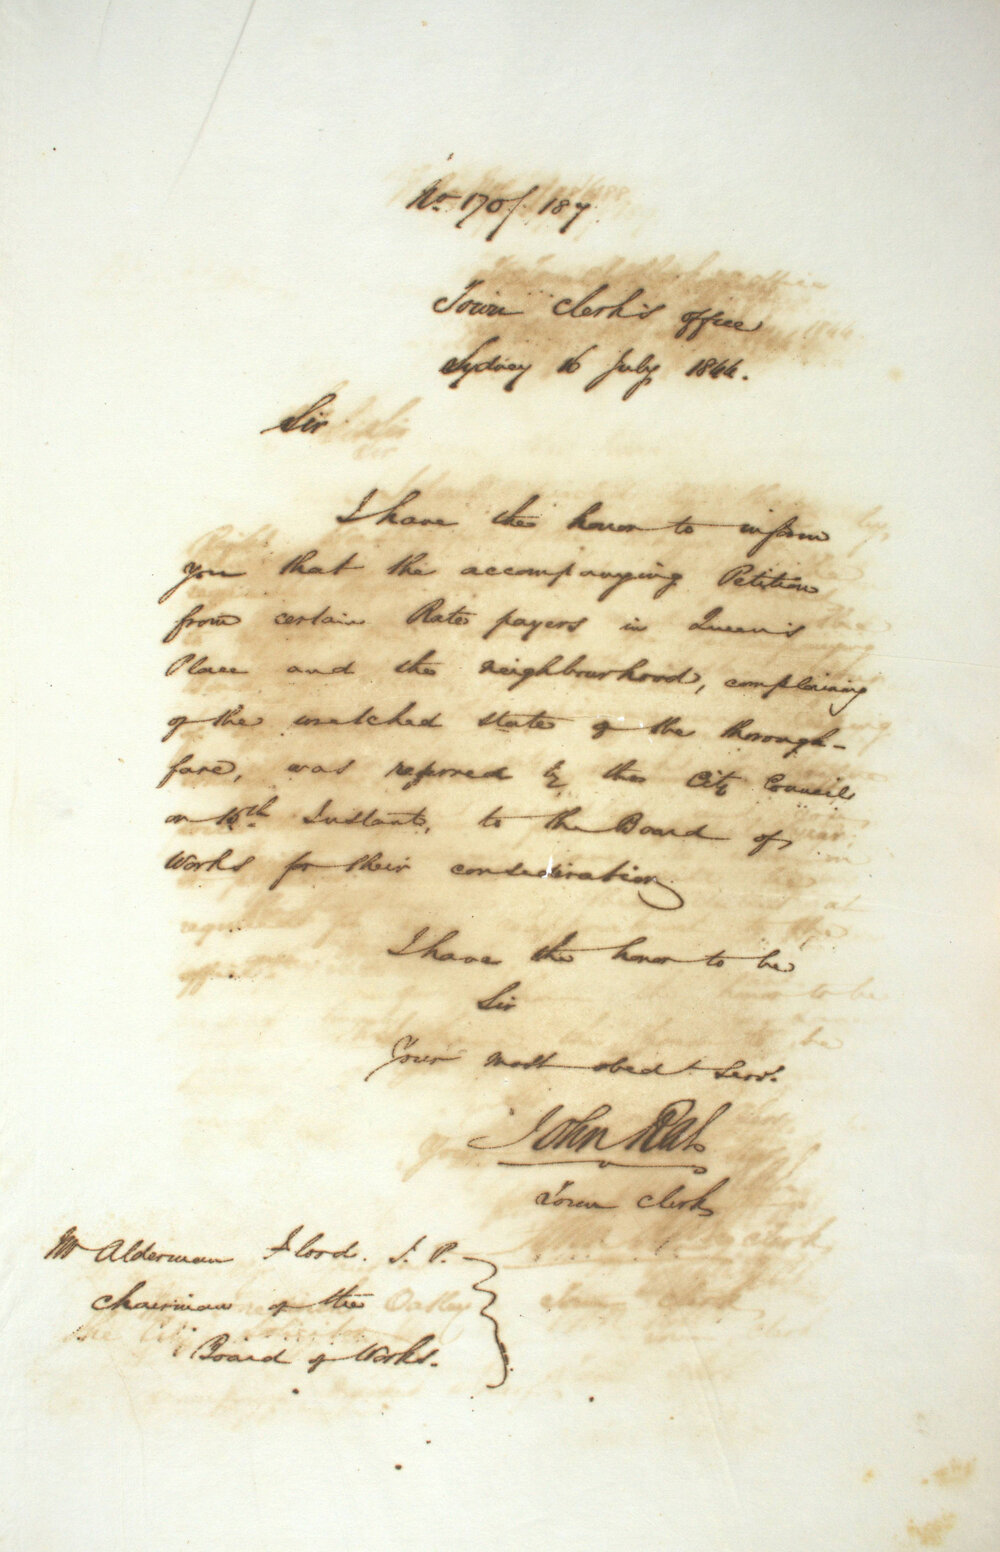 No. 170/187
Town Clerk's office
Sydney 16 July 1844.
Sir
I have the honor to inform
you that the accompanying Petition
from certain Rate payers in Queen's
Place and the neighbourhood, complaining
of the wretched state of the thorough-
fare, was referred by the City Council
on 15th Instant, to the Board of
Works for their consideration
I have the honor to be
Sir
Your most obedt Servt.
John Rae
Town Clerk
Mr Alderman Flood. J. P.
Chairman of the
Board of Works.